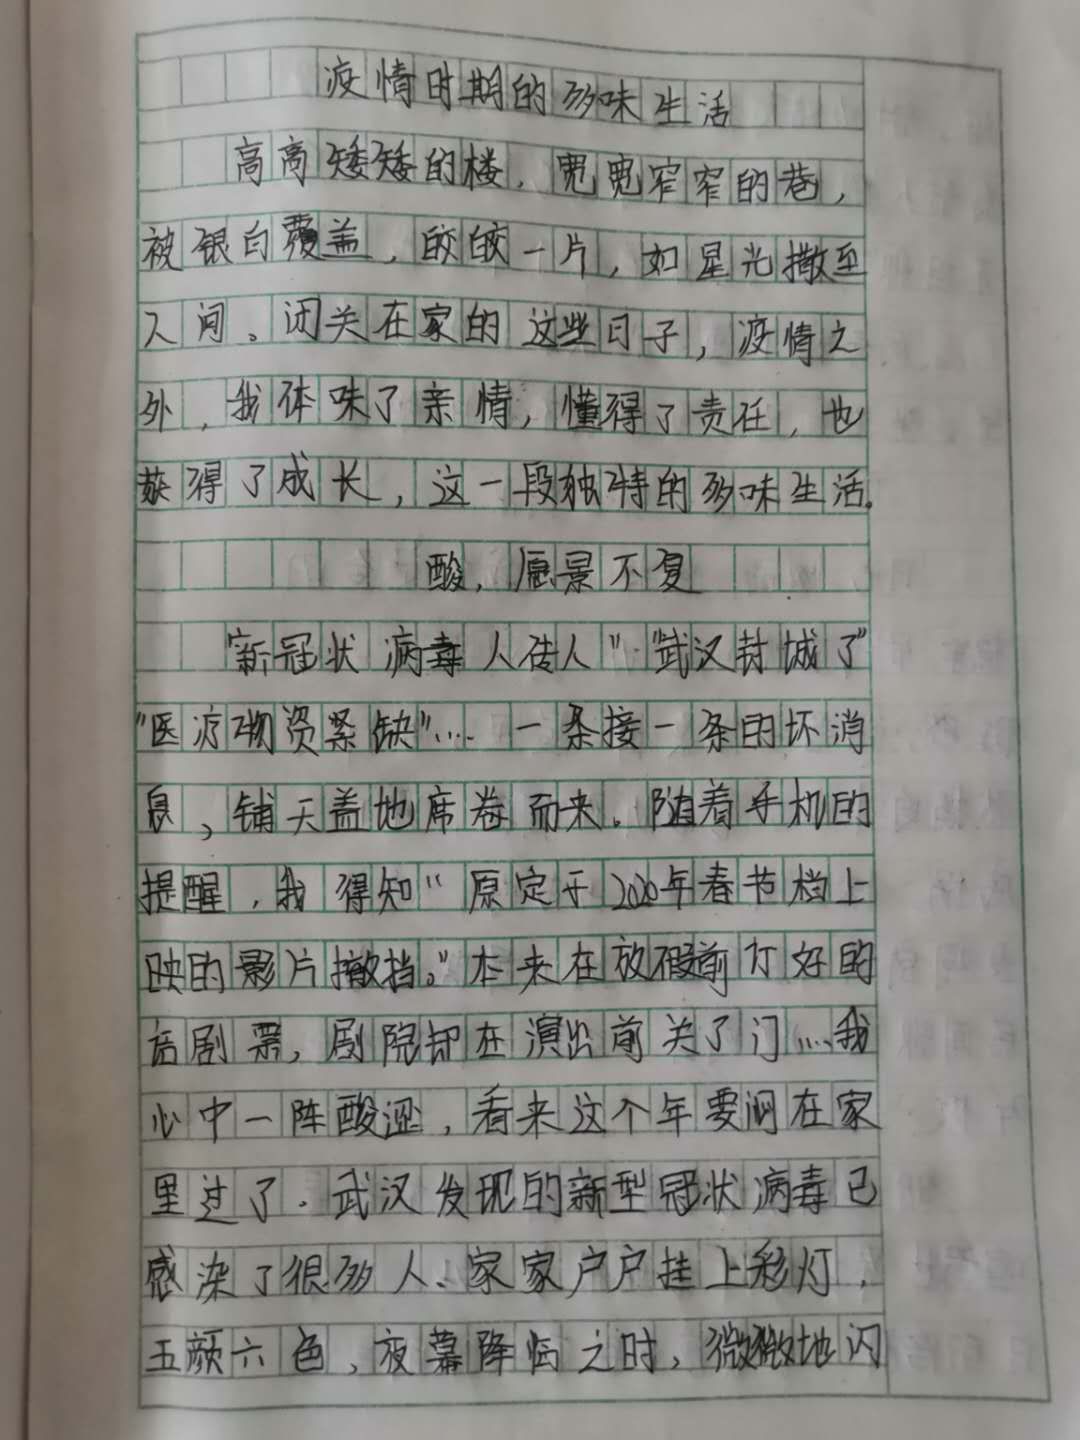 疫情时期的多味生活
高高矮矮的楼，宽宽窄窄的巷，
被银白覆盖，皎皎一片，如星光撒至
人间。闭关在家的这些日子，疫情之
外，我体味了亲情，懂得了责任，也
获得了成长，这一段独特的多味生活。
酸，愿景不复
“新冠状病毒人传人”“武汉封城了”
“医疗物资紧缺”……一条接一条的坏消
息，铺天盖地席卷而来。随着手机的
提醒，我得知“原定于2020年春节档上
映的影片撤挡。”本来在放假前订好的
话剧票，剧院却在演出前关了门……我
心中一阵酸涩，看来这个年要闷在家
里过了。武汉发现的新型冠状病毒已
感染了很多人、家家户户挂上彩灯，
五颜六色，夜幕降临之时，微微地闪